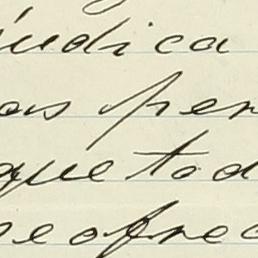 údica
os per
que tod
se ofrec